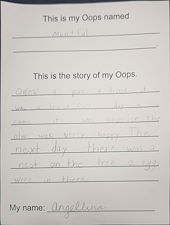 This is my Oops named
This is the story of my Oops.
Once a pon a time it
was a beautiful day a
it was because the
was very happy The
next day there was a
nest on the tree a egg
were in there
My name: Angellina